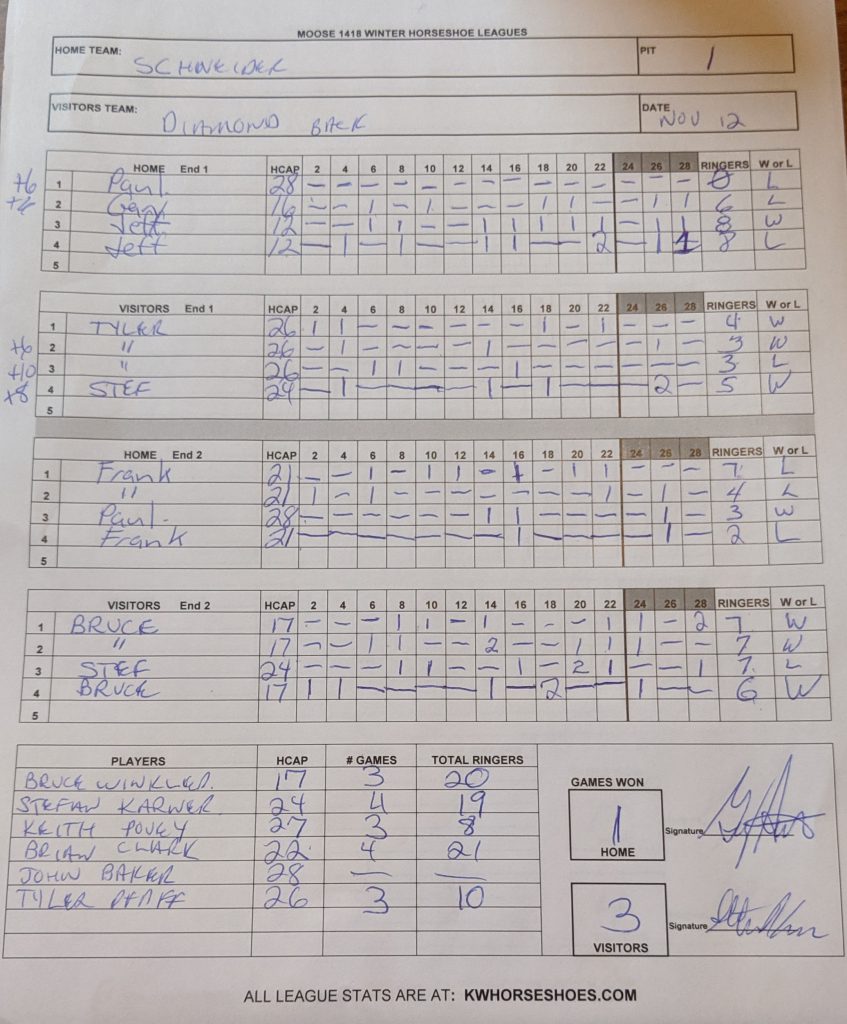 MOOSE 1418 WINTER HORSESHOE LEAGUES
HOME TEAM: SCHNEIDER PIT 1
VISITORS TEAM: DIAMOND BACK DATE NOV 12
HOME End 1 HCAP 2 4 6 8 10 12 14 16 18 20 22 24 26 28 RINGERS W or L
+6 1 Paul. 28 — — — — — — — — — — — — — — 0 L
2 Gary 16 — — 1 — 1 — — — 1 1 — — 1 1 6 L
3 Jeff 12 — — 1 1 — — 1 1 1 1 1 — 1 1 8 W
4 Jeff 12 — 1 — 1 — — 1 1 — — 2 — 1 1 8 L
5
VISITORS End 1 HCAP 2 4 6 8 10 12 14 16 18 20 22 24 26 28 RINGERS W or L
1 TYLER 26 1 1 — — — — — — 1 — 1 — — — 4 W
+6 2 " 26 — 1 — — — — 1 — — — — — 1 — 3 W
+10 3 " 26 — — 1 1 — — — 1 — — — — — — 3 L
+8 4 STEF 24 — 1 — — — — 1 — 1 — — — 2 — 5 W
5
HOME End 2 HCAP 2 4 6 8 10 12 14 16 18 20 22 24 26 28 RINGERS W or L
1 Frank 21 — — 1 — 1 1 — 1 — 1 1 — — — 7 L
2 " 21 1 — 1 — — — — — — — 1 — 1 — 4 L
3 Paul. 28 — — — — — — 1 1 — — — — 1 — 3 W
4 Frank 21 — — — — — — — 1 — — — — 1 — 2 L
5
VISITORS End 2 HCAP 2 4 6 8 10 12 14 16 18 20 22 24 26 28 RINGERS W or L
1 BRUCE 17 — — — 1 1 — 1 — — — 1 1 — 2 7 W
2 " 17 — — 1 1 — — 2 — — 1 1 1 — — 7 W
3 STEF 24 — — — 1 1 — — 1 — 2 1 — — 1 7. L
4 BRUCE 17 1 1 — — — — 1 — 2 — — 1 — — 6 W
5
PLAYERS HCAP # GAMES TOTAL RINGERS
BRUCE WINKLER. 17 3 20
STEFAN KARNER 24 4 19
KEITH POVEY 27 3 8
BRIAN CLARK 22 4 21
JOHN BAKER 28 — —
TYLER PFAFF 26 3 10
GAMES WON
1
HOME
Signature
3
VISITORS
Signature
ALL LEAGUE STATS ARE AT: KWHORSESHOES.COM